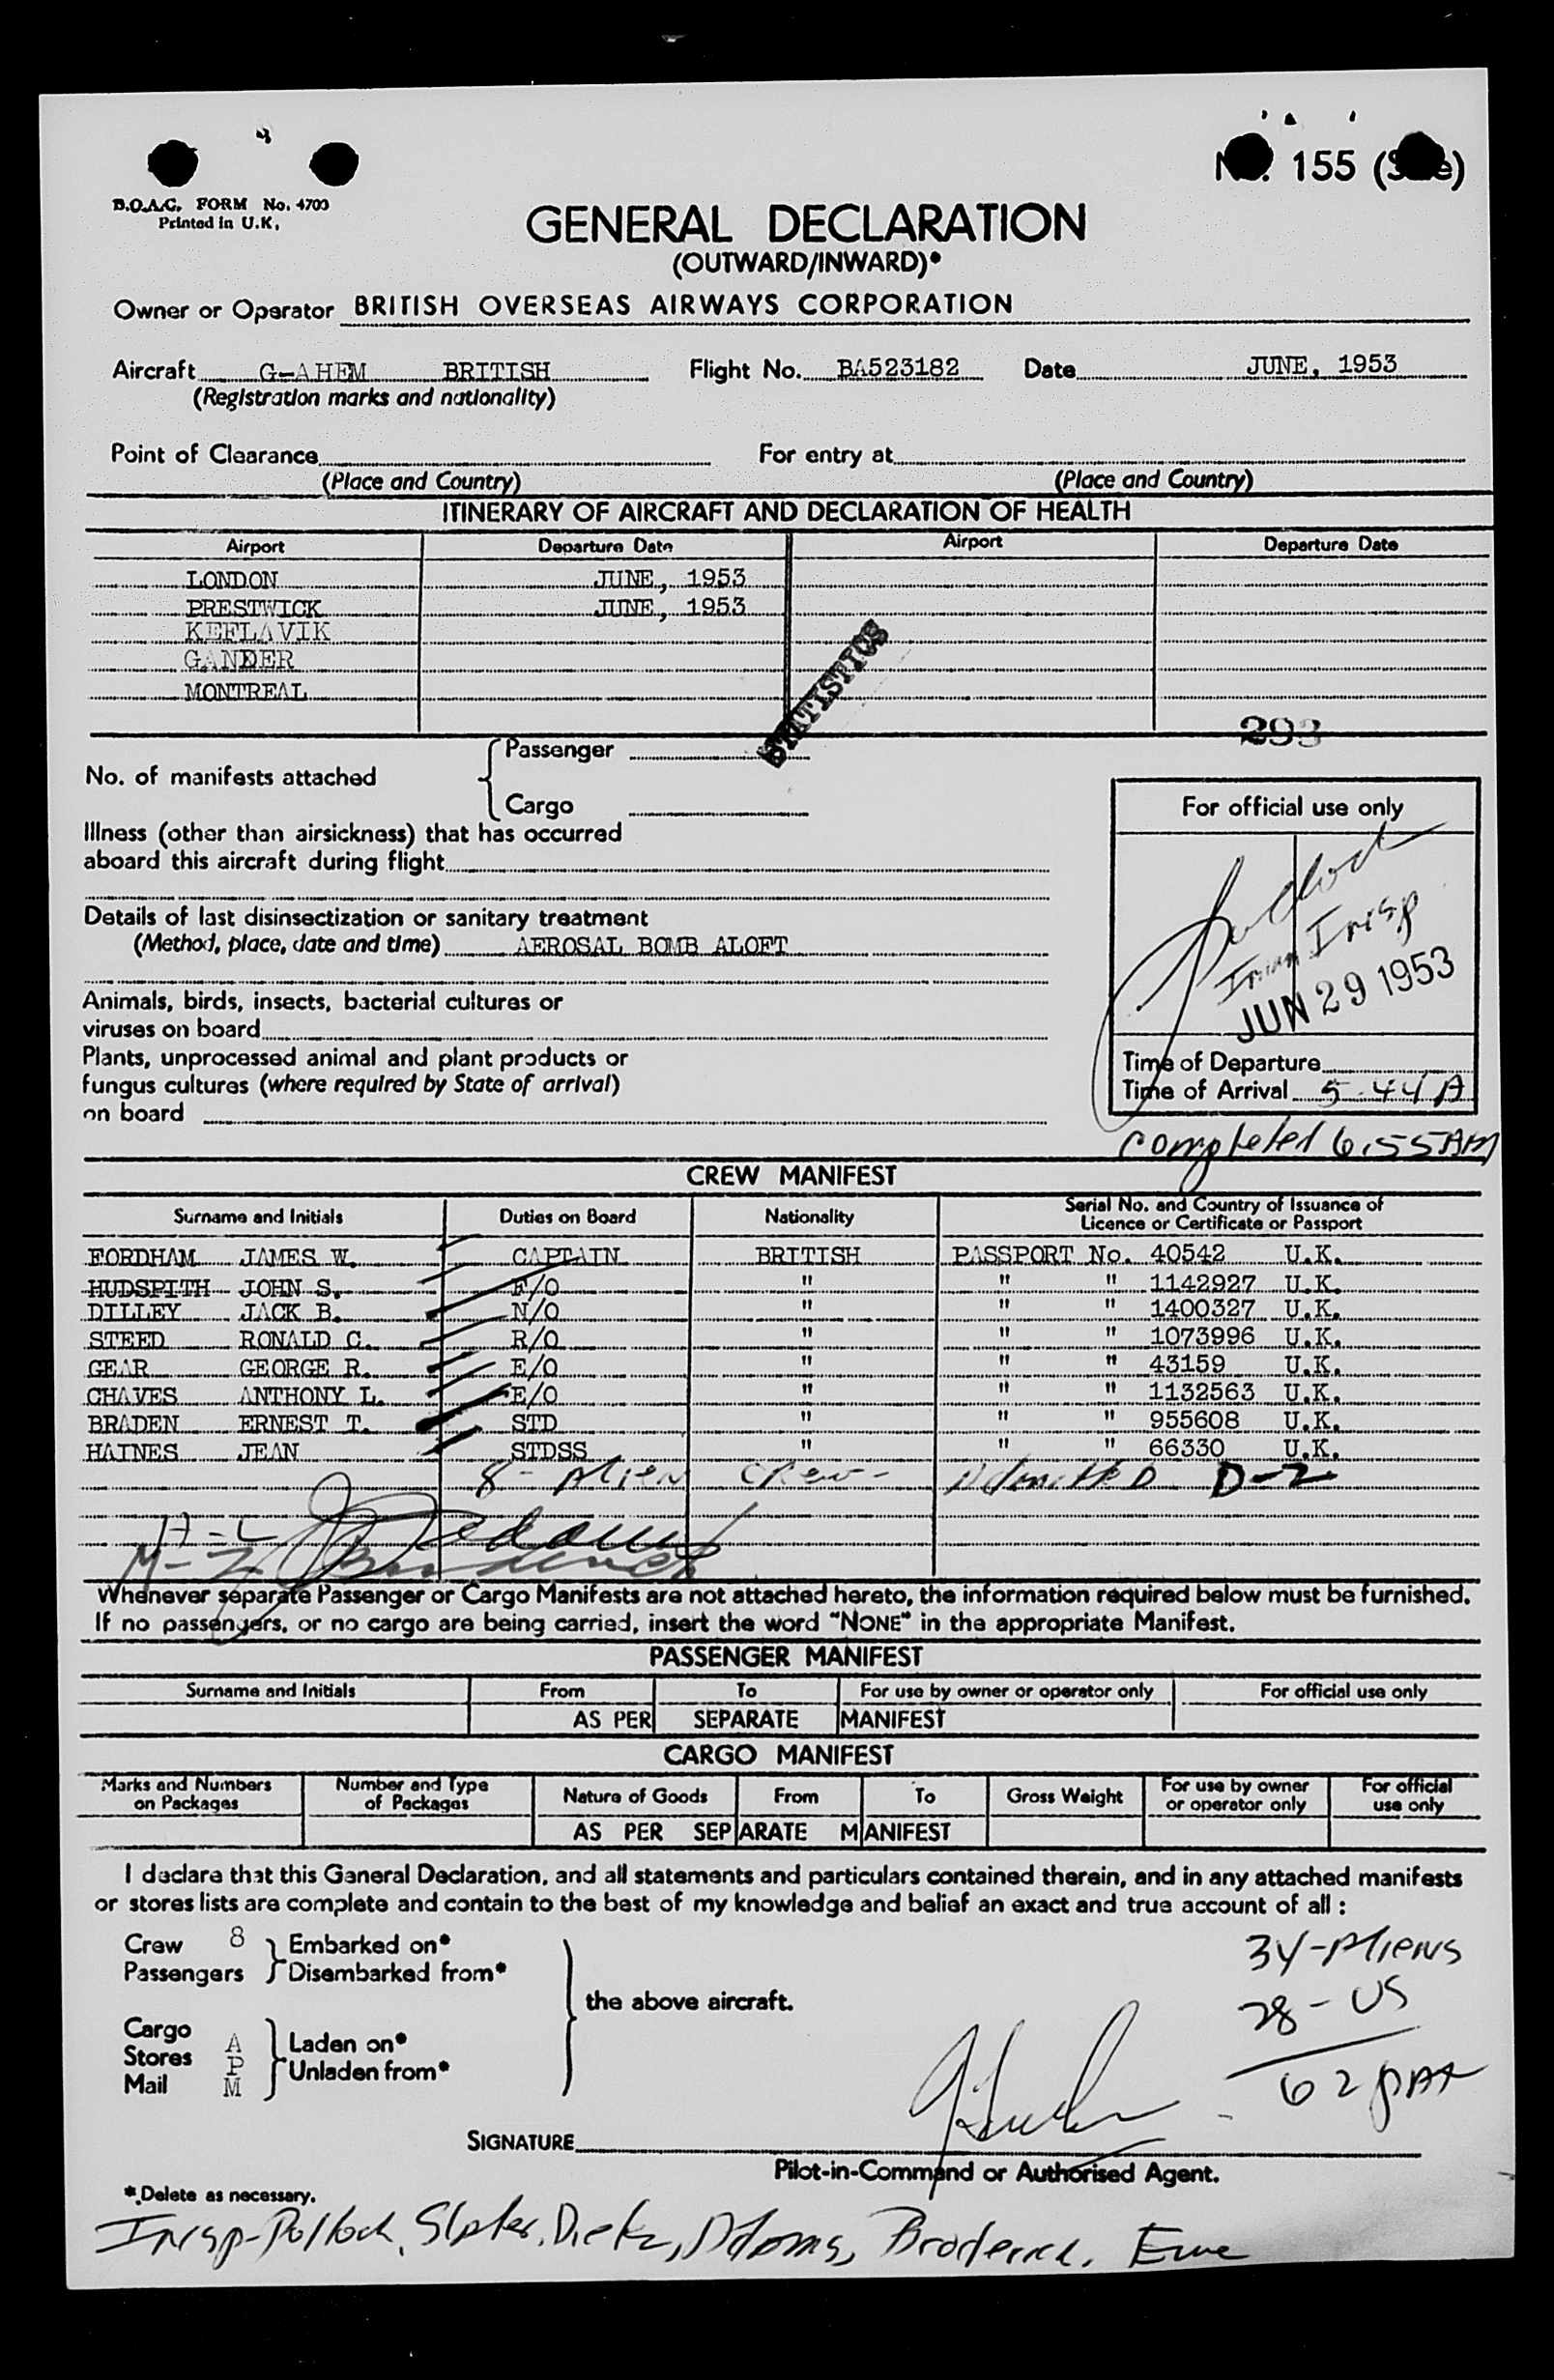 B.O.A.C. FORM No. 4700
Printed in U.K.
155
GENERAL DECLARATION
(OUTWARD/INWARD)*
Owner or Operator BRITISH OVERSEAS AIRWAYS CORPORATION
Aircraft G-AHEM BRITISH Flight No. BA523182 Date JUNE, 1953
(Registration marks and nationality)
Point of Clearance For entry at
(Place and Country) (Place and Country)
ITINERARY OF AIRCRAFT AND DECLARATION OF HEALTH
Airport Departure Date Airport Departure Date
LONDON JUNE, 1953
PRESTWICK JUNE, 1953
KEFLAVIK
GANDER
MONTREAL
STATISTICS
293
No. of manifests attached
Passenger
Cargo
For official use only
Illness (other than airsickness) that has occurred
aboard this aircraft during flight
Details of last disinsectization or sanitary treatment
(Method, place, date and time) AEROSAL BOMB ALOFT
Pollock
Imm Insp
JUN 29 1953
Animals, birds, insects, bacterial cultures or
viruses on board
Plants, unprocessed animal and plant products or
fungus cultures (where required by State of arrival)
on board
Time of Departure
Time of Arrival 5-44 A
Completed 6.55 AM
CREW MANIFEST
Surname and Initials Duties on Board Nationality Serial No. and Country of Issuance of
Licence or Certificate or Passport
FORDHAM JAMES W. CAPTAIN BRITISH PASSPORT No. 40542 U.K.
HUDSPITH JOHN S. F/O " " " 1142927 U.K.
DILLEY JACK B. N/O " " " 1400327 U.K.
STEED RONALD C. R/O " " " 1073996 U.K.
GEAR GEORGE R. E/O " " " 43159 U.K.
CHAVES ANTHONY L. E/O " " " 1132563 U.K.
BRADEN ERNEST T. STD " " " 955608 U.K.
HAINES JEAN STDSS " " " 66330 U.K.
8 - Alien Crew - Admitted D-2
Whenever separate Passenger or Cargo Manifests are not attached hereto, the information required below must be furnished.
If no passengers, or no cargo are being carried, insert the word "NONE" in the appropriate Manifest.
PASSENGER MANIFEST
Surname and Initials From To For use by owner or operator only For official use only
AS PER SEPARATE MANIFEST
CARGO MANIFEST
Marks and Numbers on Packages Number and Type of Packages Nature of Goods From To Gross Weight For use by owner or operator only For official use only
AS PER SEPARATE MANIFEST
I declare that this General Declaration, and all statements and particulars contained therein, and in any attached manifests
or stores lists are complete and contain to the best of my knowledge and belief an exact and true account of all :
Crew 8 Embarked on*
Passengers Disembarked from*
the above aircraft.
Cargo A Laden on*
Stores P Unladen from*
Mail M
34-Aliens
28-US
62 pax
SIGNATURE
Pilot-in-Command or Authorised Agent.
*Delete as necessary.
Insp-Pollock, Slater, Dietz, Adams, Broderick,